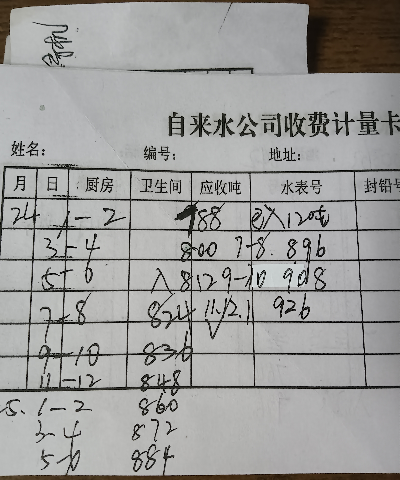 自来水公司收费计量卡
姓名： 编号： 地址：
月 日 厨房 卫生间 应收吨 水表号 封铅号
24 1-2 788 12吨
3-4 800 7-8. 896
5-6 入 812 9-10 908
7-8 824 11.12.1 926
9-10 836
11-12 848
25. 1-2 860
3-4 872
5-6 884